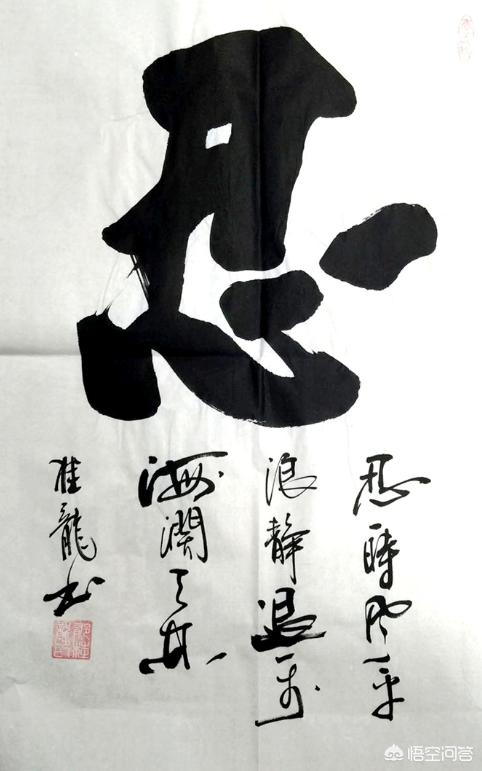 忍
忍一時风平
浪靜退一步
海阔天空
桂龍书
悟空问答